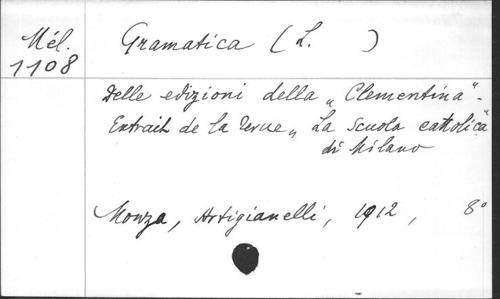 Mél.
1108
Gramatica (L. )
Delle edizioni della „Clementina" -
Extrait de la revue „La Scuola cattolica"
di Milano
Monza, Artigianelli, 1912, 8°